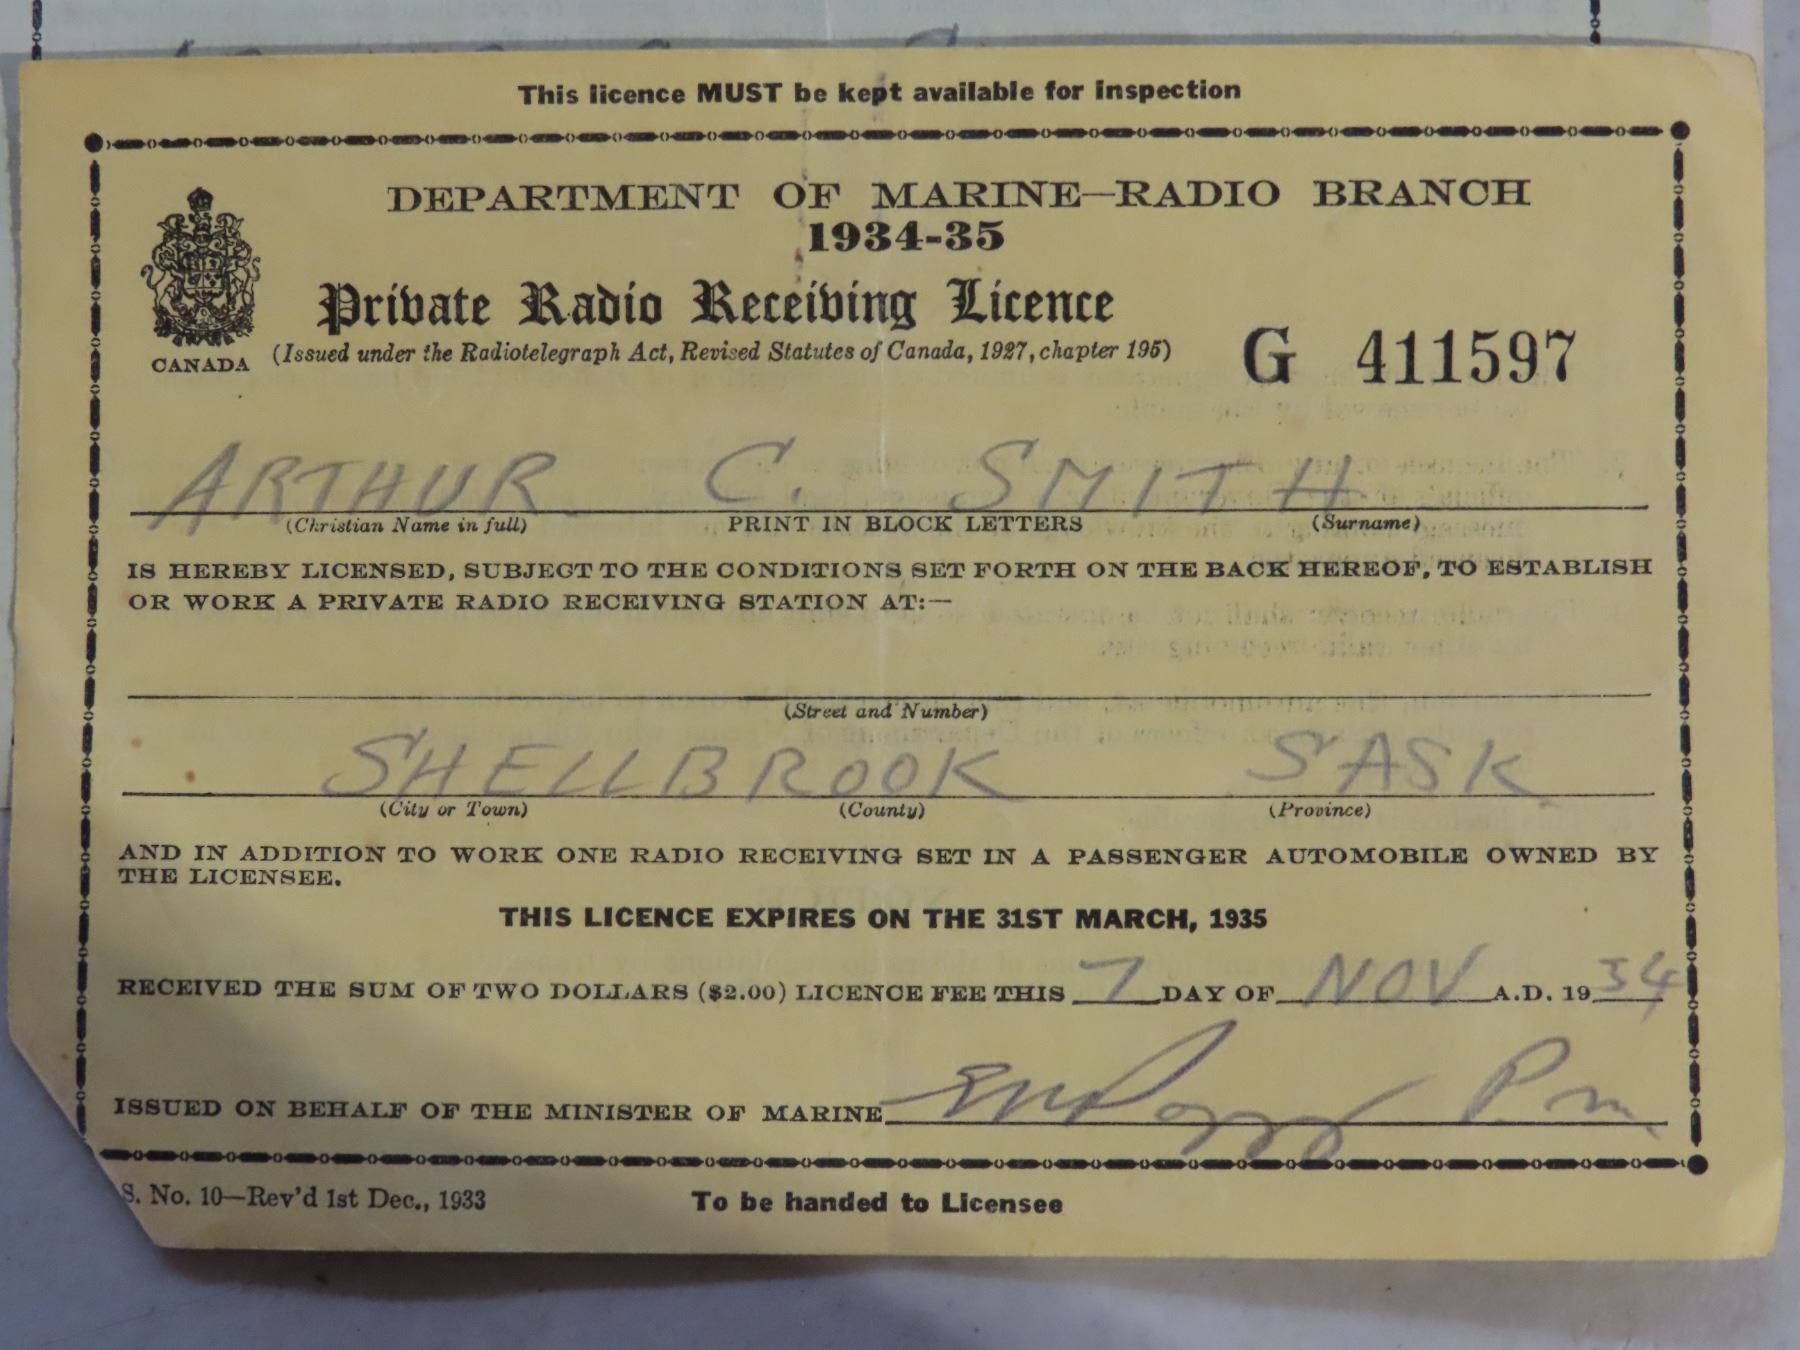 This licence MUST be kept available for inspection
DEPARTMENT OF MARINE—RADIO BRANCH
1934-35
Private Radio Receiving Licence
CANADA
(Issued under the Radiotelegraph Act, Revised Statutes of Canada, 1927, chapter 195)
G 411597
ARTHUR. C. SMITH.
(Christian Name in full) PRINT IN BLOCK LETTERS (Surname)
IS HEREBY LICENSED, SUBJECT TO THE CONDITIONS SET FORTH ON THE BACK HEREOF, TO ESTABLISH
OR WORK A PRIVATE RADIO RECEIVING STATION AT:—
(Street and Number)
SHELLBROOK SASK.
(City or Town) (County) (Province)
AND IN ADDITION TO WORK ONE RADIO RECEIVING SET IN A PASSENGER AUTOMOBILE OWNED BY
THE LICENSEE.
THIS LICENCE EXPIRES ON THE 31ST MARCH, 1935
RECEIVED THE SUM OF TWO DOLLARS ($2.00) LICENCE FEE THIS 7 DAY OF NOV A.D. 1934
ISSUED ON BEHALF OF THE MINISTER OF MARINE P.m.
S. No. 10—Rev'd 1st Dec., 1933
To be handed to Licensee